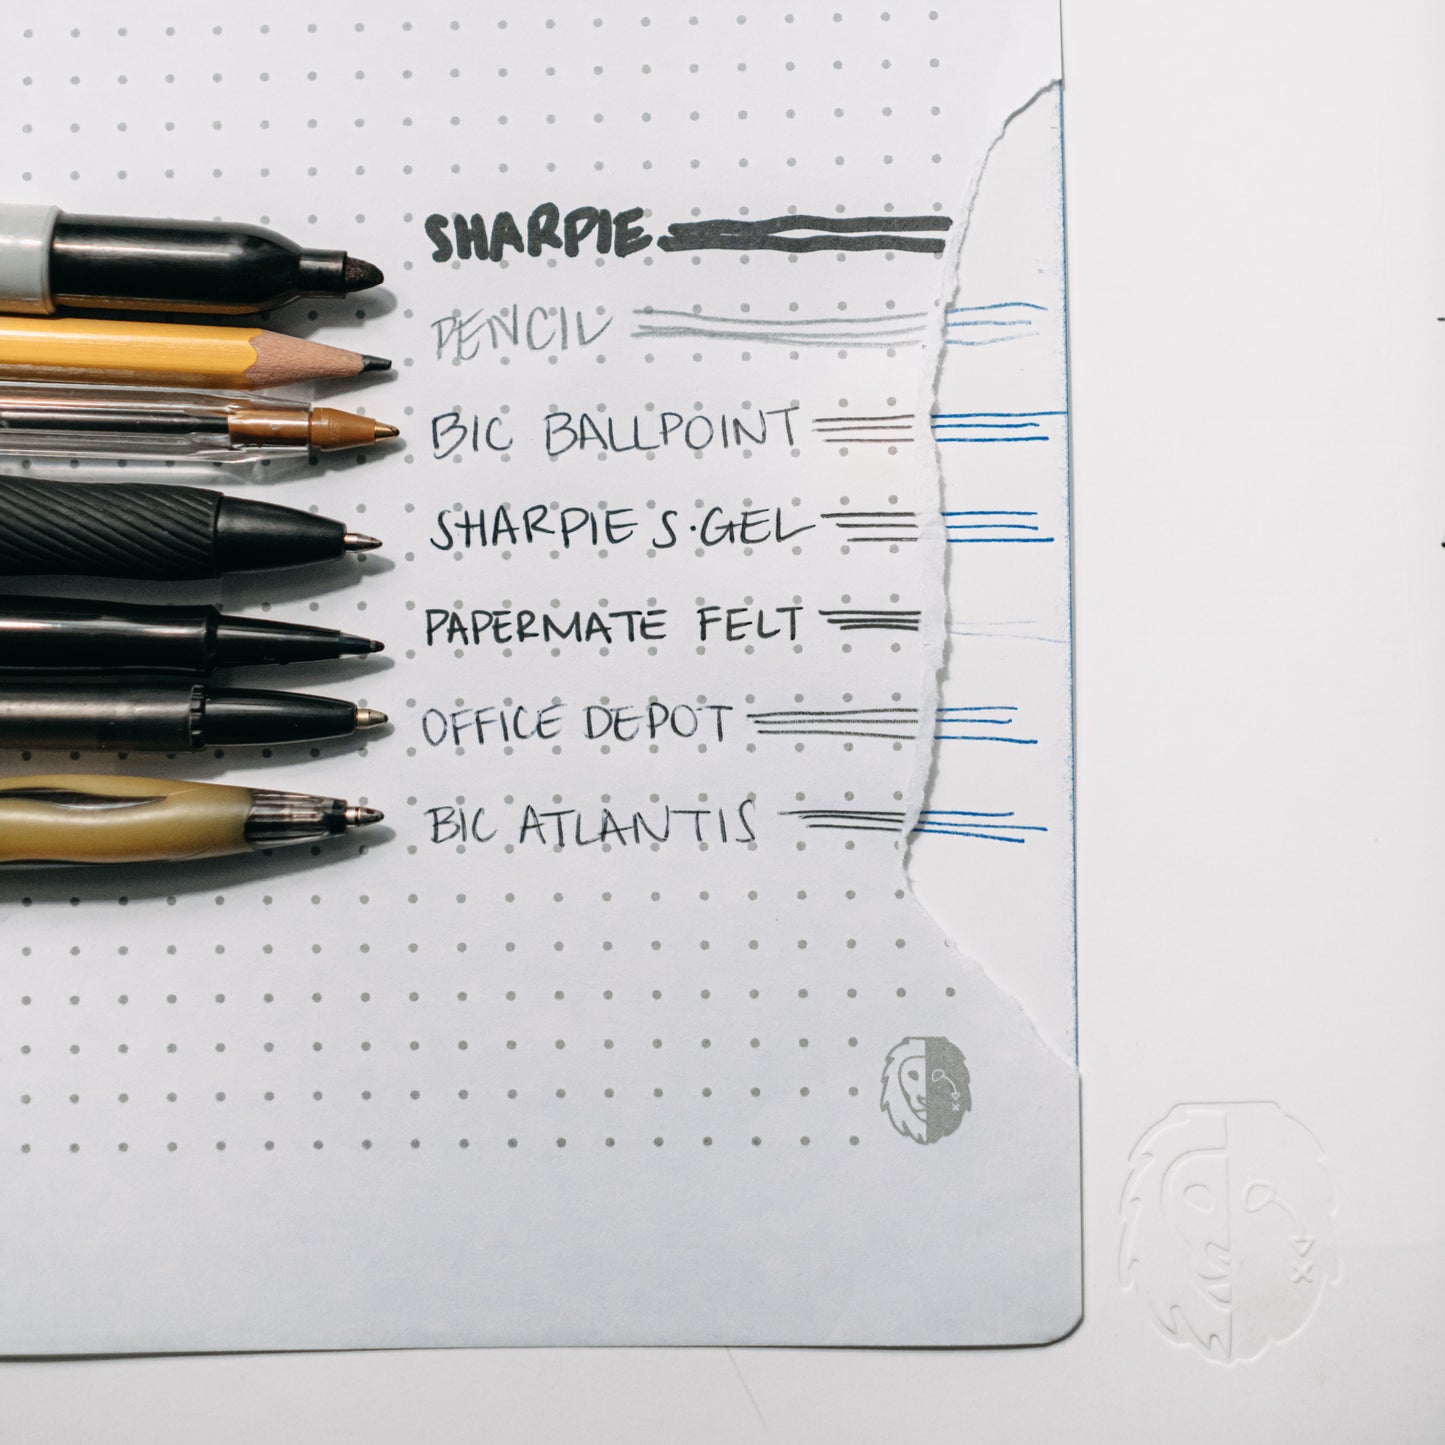 SHARPIE
PENCIL
BIC BALLPOINT
SHARPIE S·GEL
PAPERMATE FELT
OFFICE DEPOT
BIC ATLANTIS